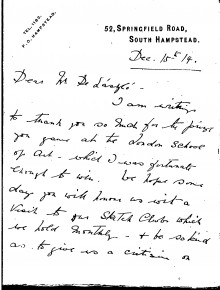 TEL. 1780.
P.O. HAMPSTEAD.
52, SPRINGFIELD ROAD,
SOUTH HAMPSTEAD.
Dec. 15th 14.
Dear Mr De László -
I am writing
to thank you so much for the prize
you gave at the London School
of Art - which I was fortunate
enough to win. We hope some
day you will honour us with a
visit to our Sketch Club which
we hold monthly - & be so kind
as to give us a criticism on